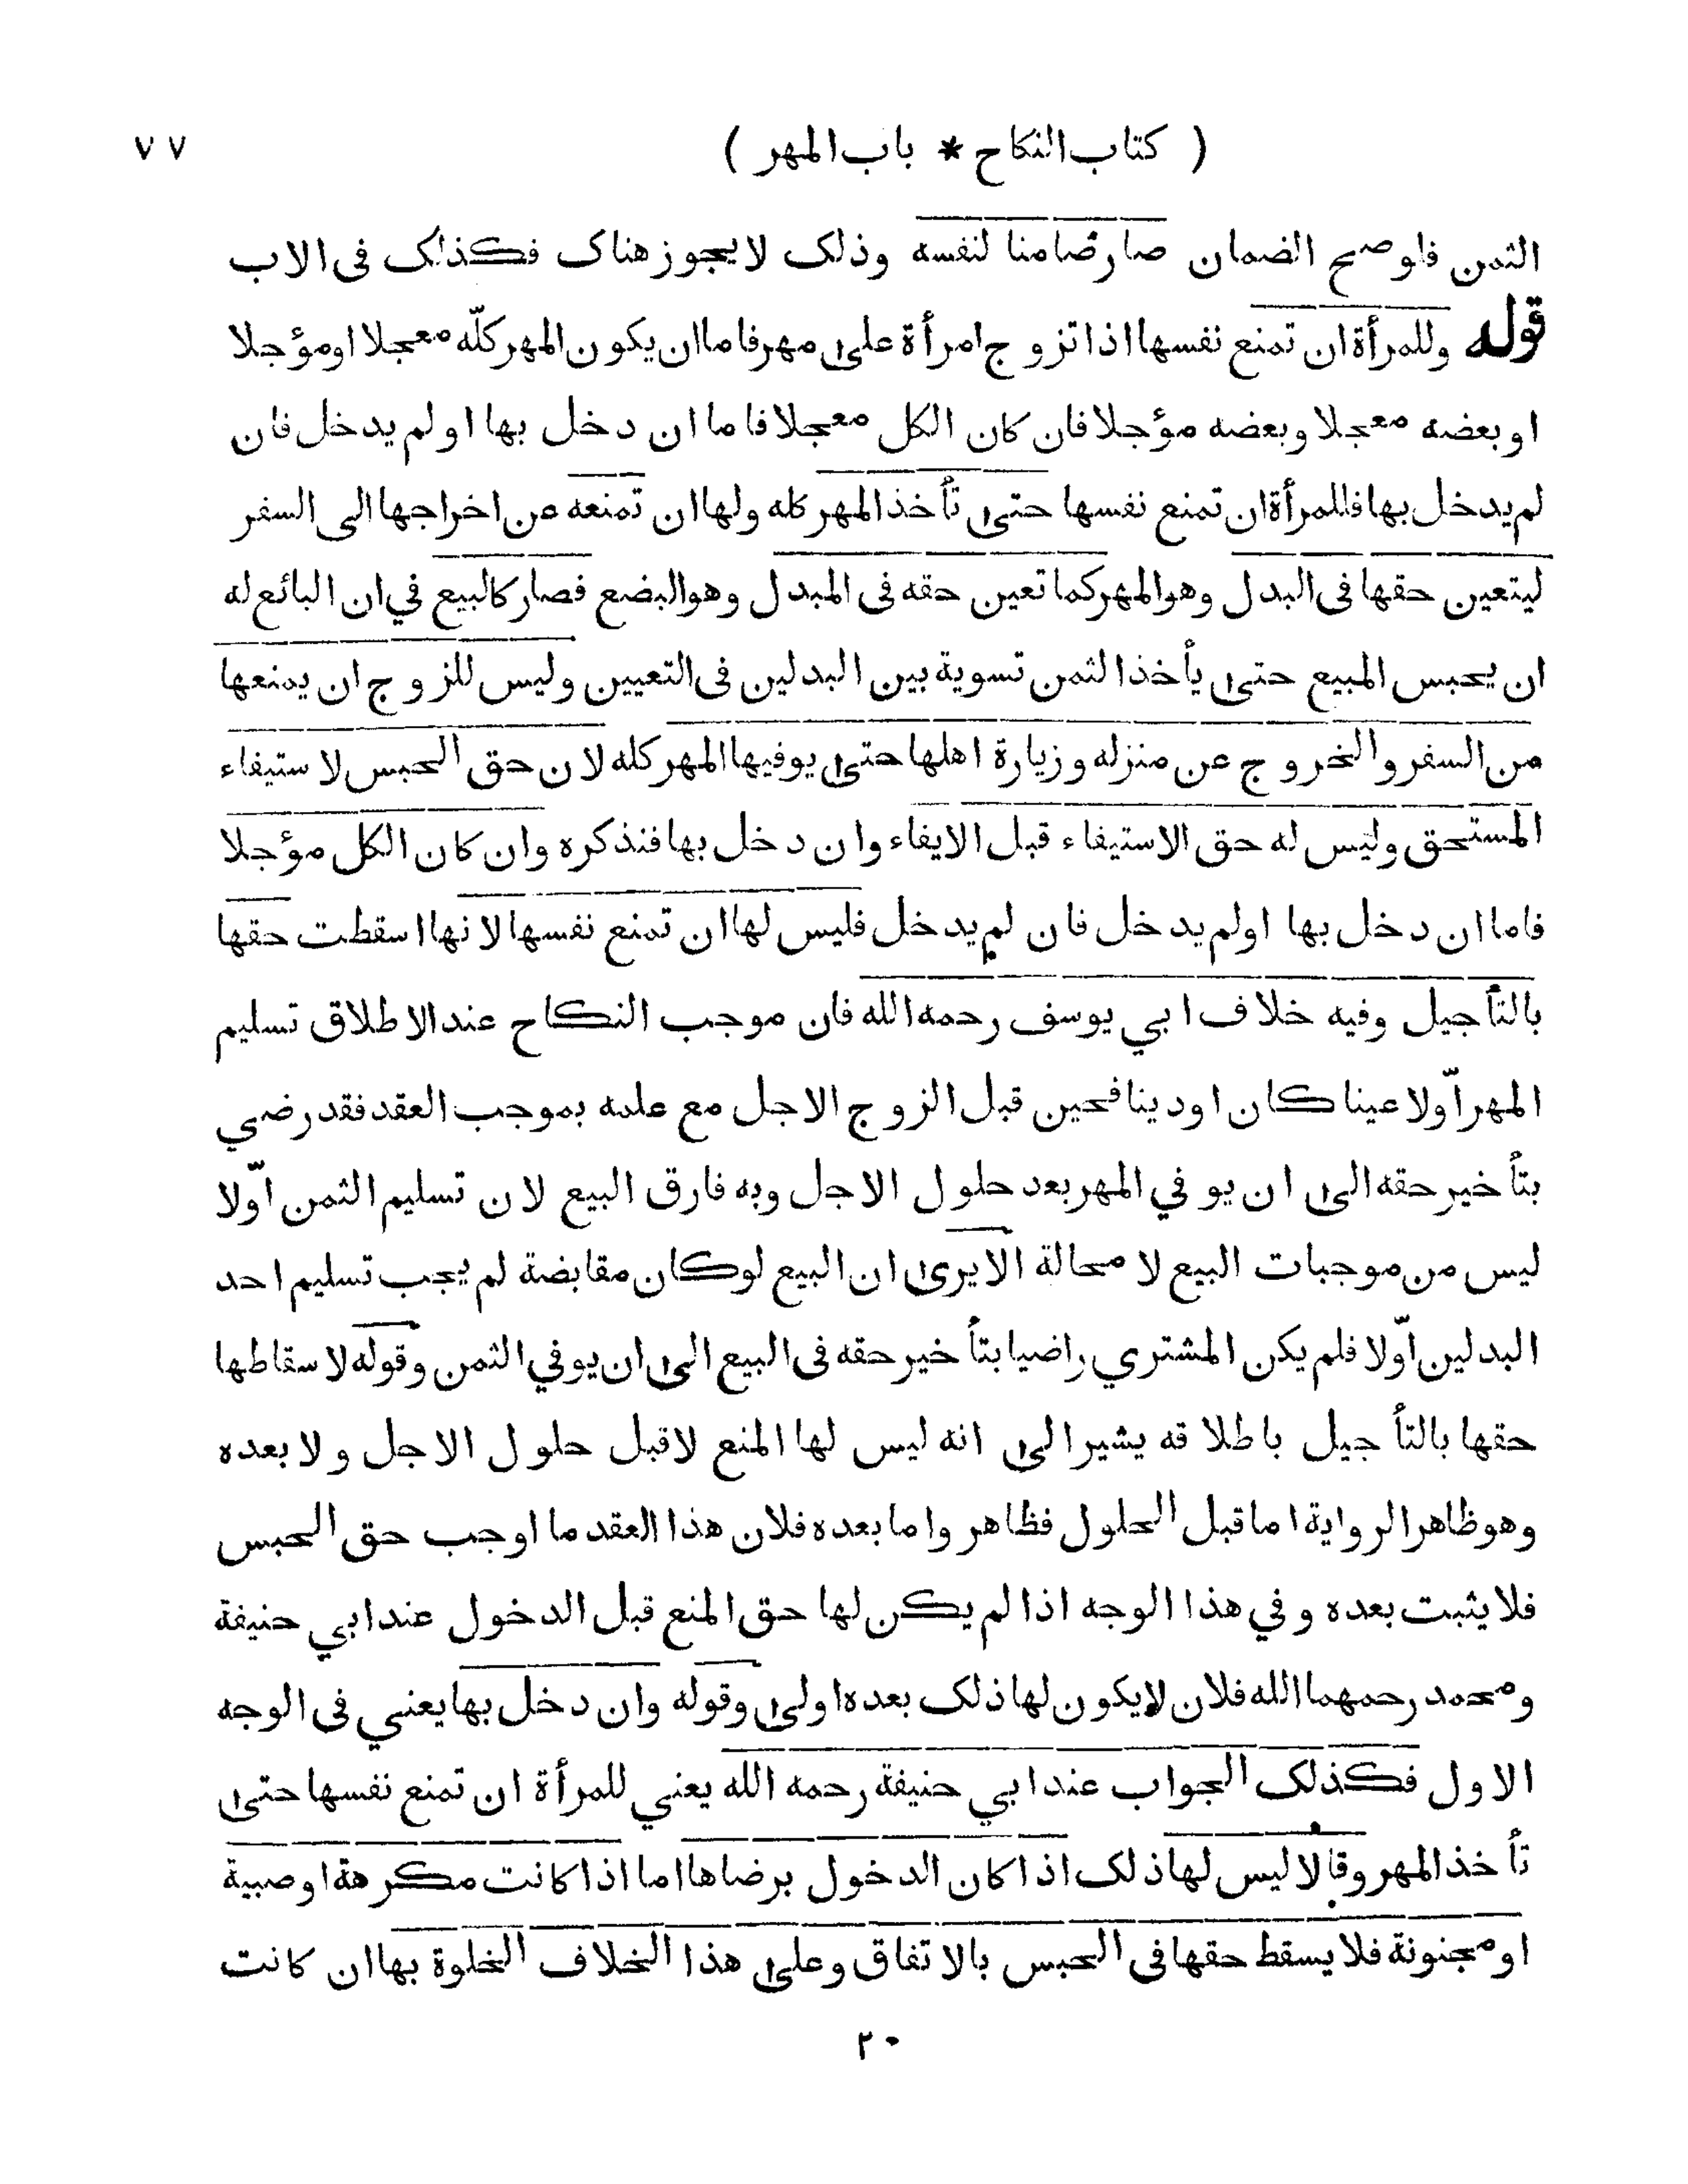 ( كتاب النكاح * باب المهر ) ٧٧
الثمن فلو صح الضمان صار ضامنا لنفسه وذلك لا يجوز هناك فكذلك في الاب
قوله وللمرأة ان تمنع نفسها اذا تزوج امرأة على مهر فاما ان يكون المهر كلّه معجلا او مؤجلا
او بعضه معجلا وبعضه مؤجلا فان كان الكل معجلا فاما ان دخل بها او لم يدخل فان
لم يدخل بها فللمرأة ان تمنع نفسها حتى تأخذ المهر كله ولها ان تمنعه عن اخراجها الى السفر
ليتعين حقها في البدل وهو المهر كما تعين حقه في المبدل وهو البضع فصار كالبيع في ان البائع له
ان يحبس المبيع حتى يأخذ الثمن تسوية بين البدلين في التعيين وليس للزوج ان يمنعها
من السفر والخروج عن منزله وزيارة اهلها حتى يوفيها المهر كله لان حق الحبس لاستيفاء
المستحق وليس له حق الاستيفاء قبل الايفاء وان دخل بها فنذكره وان كان الكل مؤجلا
فاما ان دخل بها او لم يدخل فان لم يدخل فليس لها ان تمنع نفسها لانها اسقطت حقها
بالتأجيل وفيه خلاف ابي يوسف رحمه الله فان موجب النكاح عند الاطلاق تسليم
المهر اوّلا عينا كان او دينا فحين قبل الزوج الاجل مع علمه بموجب العقد فقد رضي
بتأخير حقه الى ان يوفي المهر بعد حلول الاجل وبه فارق البيع لان تسليم الثمن اوّلا
ليس من موجبات البيع لا محالة الا يرى ان البيع لو كان مقايضة لم يجب تسليم احد
البدلين اوّلا فلم يكن المشتري راضيا بتأخير حقه في البيع الى ان يوفي الثمن وقوله لاسقاطها
حقها بالتأجيل باطلاقه يشير الى انه ليس لها المنع لا قبل حلول الاجل ولا بعده
وهو ظاهر الرواية اما قبل الحلول فظاهر واما بعده فلان هذا العقد ما اوجب حق الحبس
فلا يثبت بعده وفي هذا الوجه اذا لم يكن لها حق المنع قبل الدخول عند ابي حنيفة
ومحمد رحمهما الله فلان لا يكون لها ذلك بعده اولى وقوله وان دخل بها يعني في الوجه
الاول فكذلك الجواب عند ابي حنيفة رحمه الله يعني للمرأة ان تمنع نفسها حتى
تأخذ المهر وقالا ليس لها ذلك اذا كان الدخول برضاها اما اذا كانت مكرهة او صبية
او مجنونة فلا يسقط حقها في الحبس بالاتفاق وعلى هذا الخلاف الخلوة بها ان كانت
٢٠